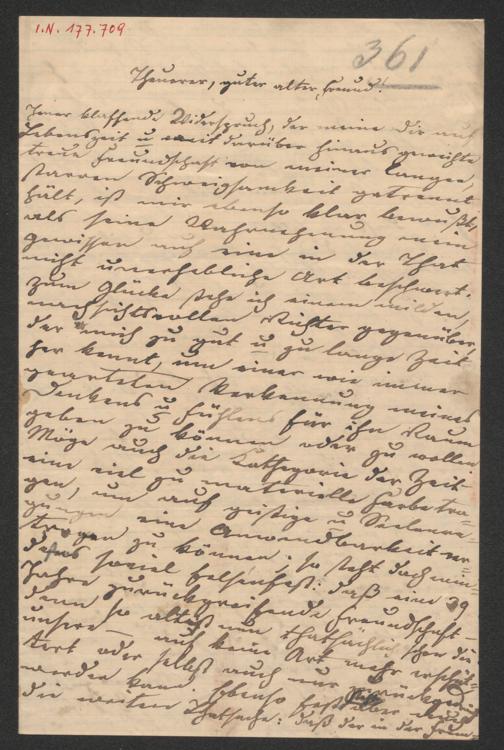 I.N. 177.709
361
Theuerer, guter alter Freund!
Jener klaffende Widerspruch, der meine Dir auf
Lebenszeit u weit darüber hinaus geweihte
treue Freundschaft von meiner langen,
starren Schweigsamkeit getrennt
hält, ist mir ebenso klar bewußt,
als seine Wahrnehmung mein
Gewissen auf eine in der That
nicht unerhebliche Art beschwert.
Zum Glücke stehe ich einem milden,
nachsichtsvollen Richter gegenüber
der mich zu gut u zu lange Zeit
her kennt, um einer wie immer
gearteten Verkennung meines
Denkens u Fühlens für ihn Raum
geben zu können oder zu wollen
Möge auch die Kathegorie der Zeit
eine viel zu materielle Farbe tra-
gen, um auf geistige u Seelenre-
gungen eine Anwendbarkeit ver-
tragen zu können. so steht doch min-
soviel felsenfest: daß eine 29
Jahre zurückgreifende Freundschaft –
denn so alt ist nun thatsächlich schon die
unsere – auf keine Art mehr erschüt-
tert oder selbst auch nur
werden kann. Ebenso fest aber auch
die weitere Thatsache: daß der in der